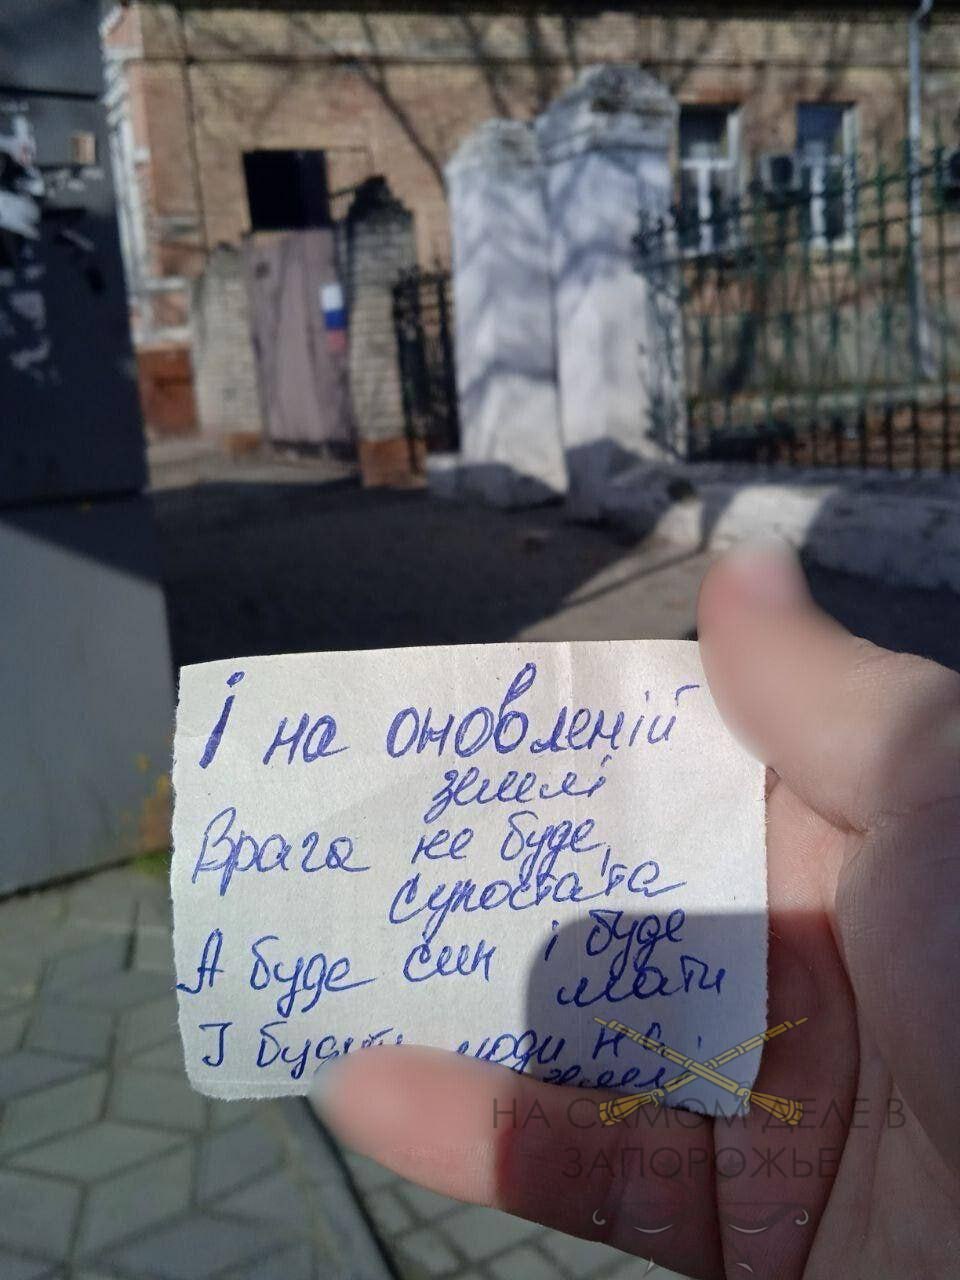 І на оновленій
землі
Врага не буде,
супостата
А буде син і буде
мати
І будуть люди на
землі
НА САМОМ ДЕЛЕ В
ЗАПОРОЖЬЕ